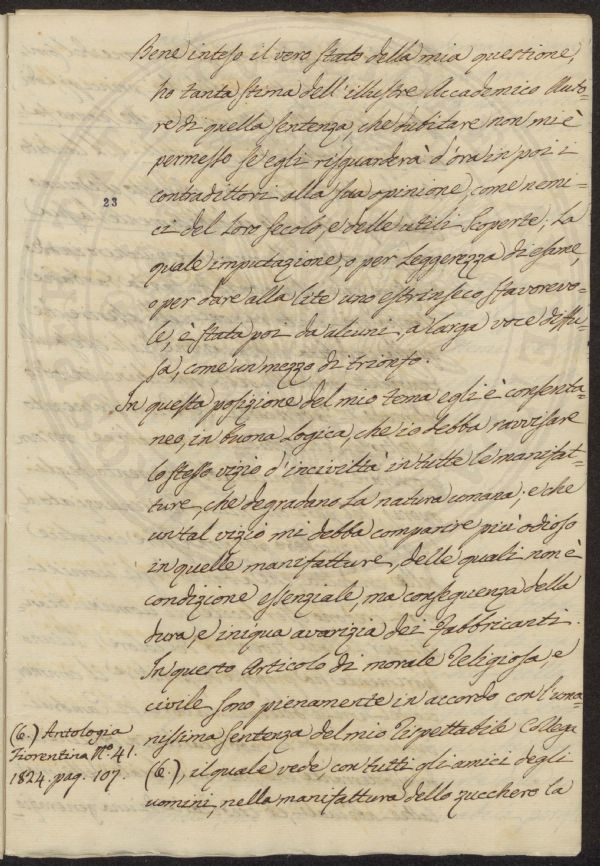 Bene inteso il vero stato della mia questione,
ho tanta stima dell'illustre Accademico Auto=
re di quella sentenza, che dubitare non mi è
permesso se egli risguarderà d'ora in poi i
contradittori alla sua opinione, come nemi=
23
ci del loro secolo, e delle utili scoperte; La
quale imputazione, o per leggerezza di esame,
o per dare alla lite uno estrinseco favorevo=
le, è stata poi da alcuni, a larga voce diffu=
sa, come un mezzo di trionfo.
In questa posizione del mio tema egli è consenta=
neo, in buona Logica, che io debba ravvisare
lo stesso vizio d'inciviltà in tutte le manifat=
ture, che degradano la natura umana; e che
un tal vizio mi debba comparire più odioso
in quelle manifatture, delle quali non è
condizione essenziale, ma conseguenza della
dura, e iniqua avarizia dei Fabbricanti.
In questo Articolo di morale Religiosa, e
civile sono pienamente in accordo con l'uma=
nissima sentenza del mio rispettabile Collega
(6.) Antologia
Fiorentina Nº 41.
1824. pag. 107.
(6.), il quale vede con tutti gli amici degli
uomini, nella manifattura dello zucchero la